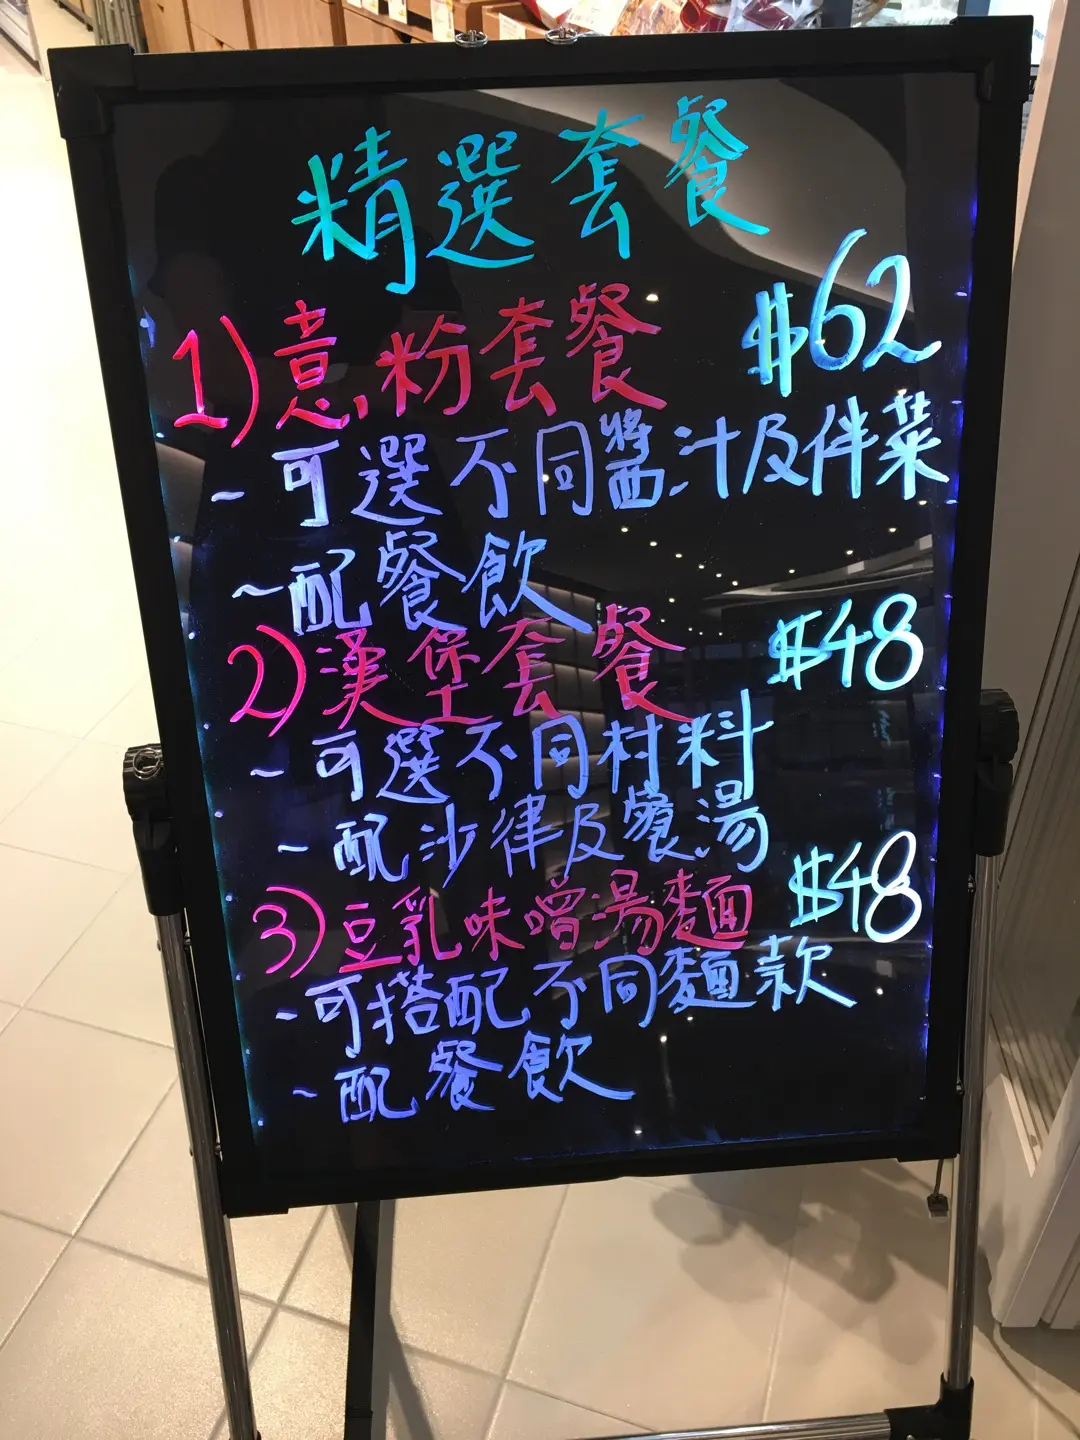 精選套餐
1) 意粉套餐 $62
~ 可選不同醬汁及伴菜
~ 配餐飲
2) 漢堡套餐 $48
~ 可選不同材料
~ 配沙律及餐湯
3) 豆乳味噌湯麵 $48
~ 可搭配不同麵款
~ 配餐飲